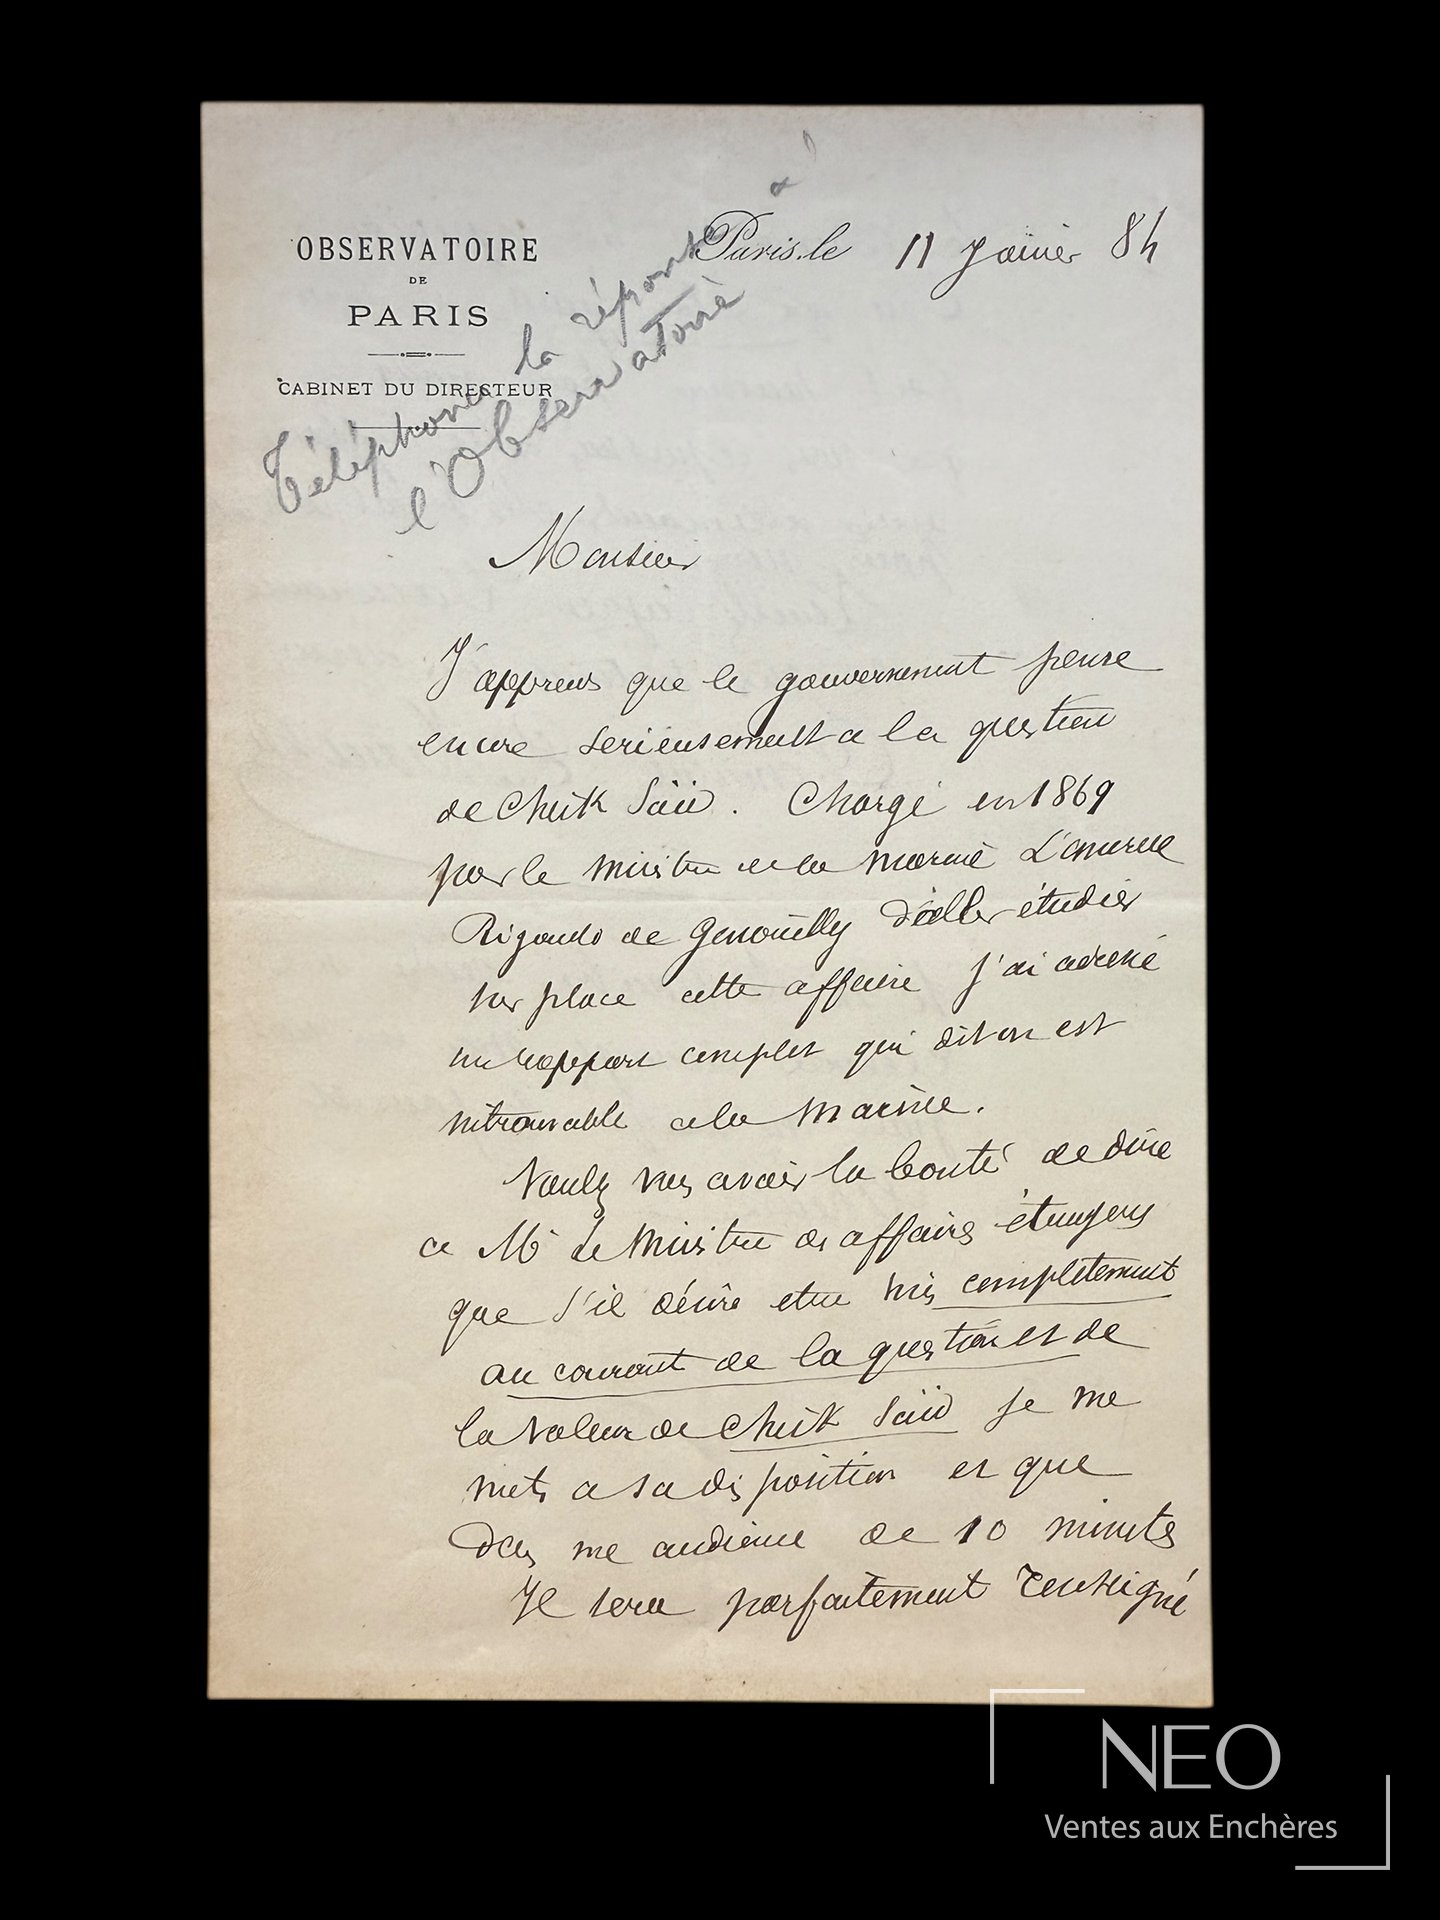 OBSERVATOIRE
DE
PARIS
CABINET DU DIRECTEUR
Paris, le 11 Janvier 84
Téléphoner la réponse à
l'Observatoire
Monsieur
J'apprens que le gouvernement pense
encore serieusement a la question
de Cheik Saïd. Chargé en 1869
par le Ministre de la marine L'amiral
Rigault de Genouilly d'aller étudier
sur place cette affaire j'ai adressé
un rapport complet qui dit on est
introuvable a la Marine.
Voulez vous avoir la bonté de dire
a Mr Le Ministre des affaires étrangeres
que s'il désire etre mis completement
au courant de la question et de
la valeur de Cheik Saïd je me
mets a sa disposition et que
dans une audience de 10 minutes
Il sera parfaitement renseigné
NEO
Ventes aux Enchères